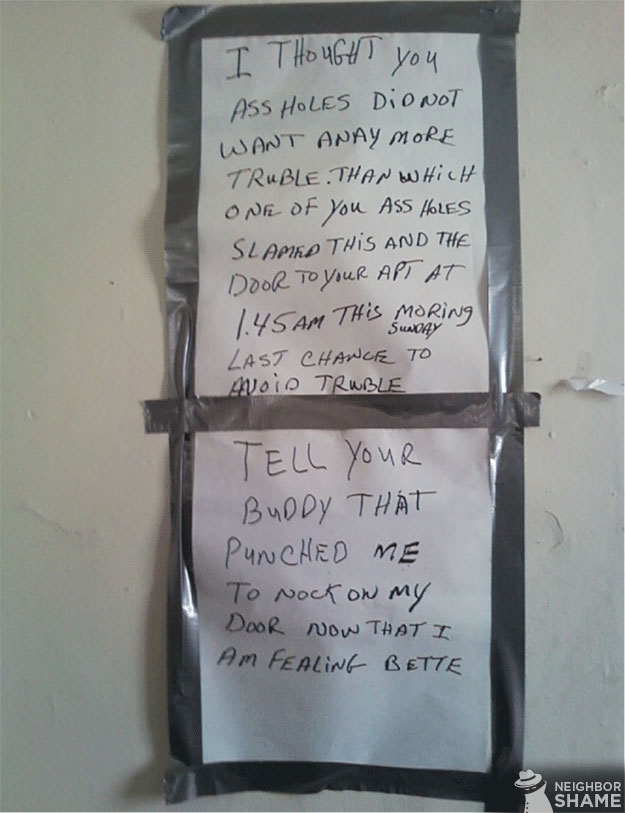 I THOUGHT YOU
ASS HOLES DID NOT
WANT ANAY MORE
TRUBLE. THAN WHICH
ONE OF YOU ASS HOLES
SLAMED THIS AND THE
DOOR TO YOUR APT AT
1.45 AM THIS MORING
SUNDAY
LAST CHANCE TO
AVOID TRUBLE
TELL YOUR
BUDDY THAT
PUNCHED ME
TO NOCK ON MY
DOOR NOW THAT I
AM FEALING BETTE
NEIGHBOR
SHAME